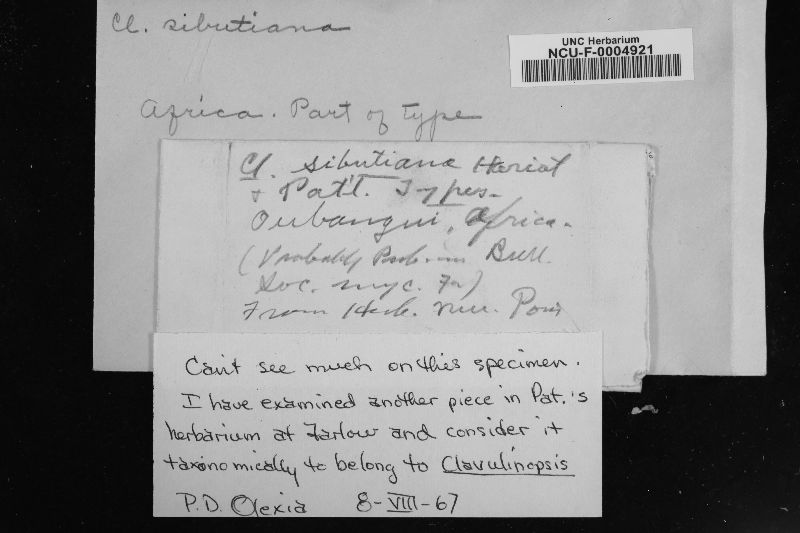 Cl. sibutiana
UNC Herbarium
NCU-F-0004921
Africa. Part of type
Cl. sibutiana Hariot
+ Patt. Types.
Oubangui, Africa.
(Probably Pub. in Bull.
Soc. Myc. Fr)
From Herb. Mus. Paris
Can't see much on this specimen.
I have examined another piece in Pat.'s
herbarium at Farlow and consider it
taxonomically to belong to Clavulinopsis
P.D. Olexia 8-VIII-67